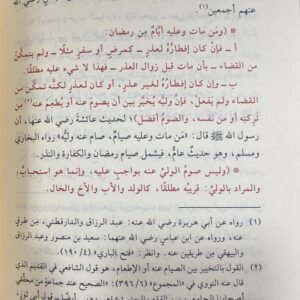 عنهم أجمعين(١)
* (ومن مات وعليه أيّامٌ من رمضان:
أ ـ فإنْ كان إفطارُه لعذرٍ ـ كمرضٍ أو سفرٍ مثلًا ـ ولم يتمكّن من
القضاء ـ بأن مات قبل زوال العذر ـ فهذا لا شيء عليه مطلقًا.
ب ـ وإن كان إفطارُه لغير عذرٍ، أو كان لعذرٍ لكنّه تمكّن من
القضاء ولم يفعل، فإنَّ وليَّه يُخيَّر بين أن يصومَ عنه أو يُطعِم عنه(٢) من
تَرِكَتِه أو من نفسه، والصومُ أفضل) لحديث عائشة رضي الله عنها، أن
رسول الله ﷺ قال: «مَن مات وعليه صيامٌ، صام عنه وليُّه» رواه البخاري
ومسلم، وهو حديثٌ عامٌّ، فيشمل صيام رمضان والكفارة والنذر.
* (وليس صومُ الوليّ عنه بواجب عليه، وإنما هو استحبابٌ.
والمراد بالوليّ: قريبُه مطلقًا، كالولد والأب والأخ والخال.
(١) رواه عن أبي هريرة رضي الله عنه: عبد الرزاق والدارقطني، من طرق
عنه، ورواه عن ابن عباس رضي الله عنهما: سعيد بن منصور وعبد الرزاق
والبيهقي من طريقين عنه. وانظر: «فتح الباري» (٤/١٩٠)
(٢) القول بالتخيير بين الصيام عنه أو الإطعام، هو قول الشافعي في القديم الذي
قال عنه النووي في «المجموع» (٦/٣٩١): «الصحيح عند جماعةٍ من محققي